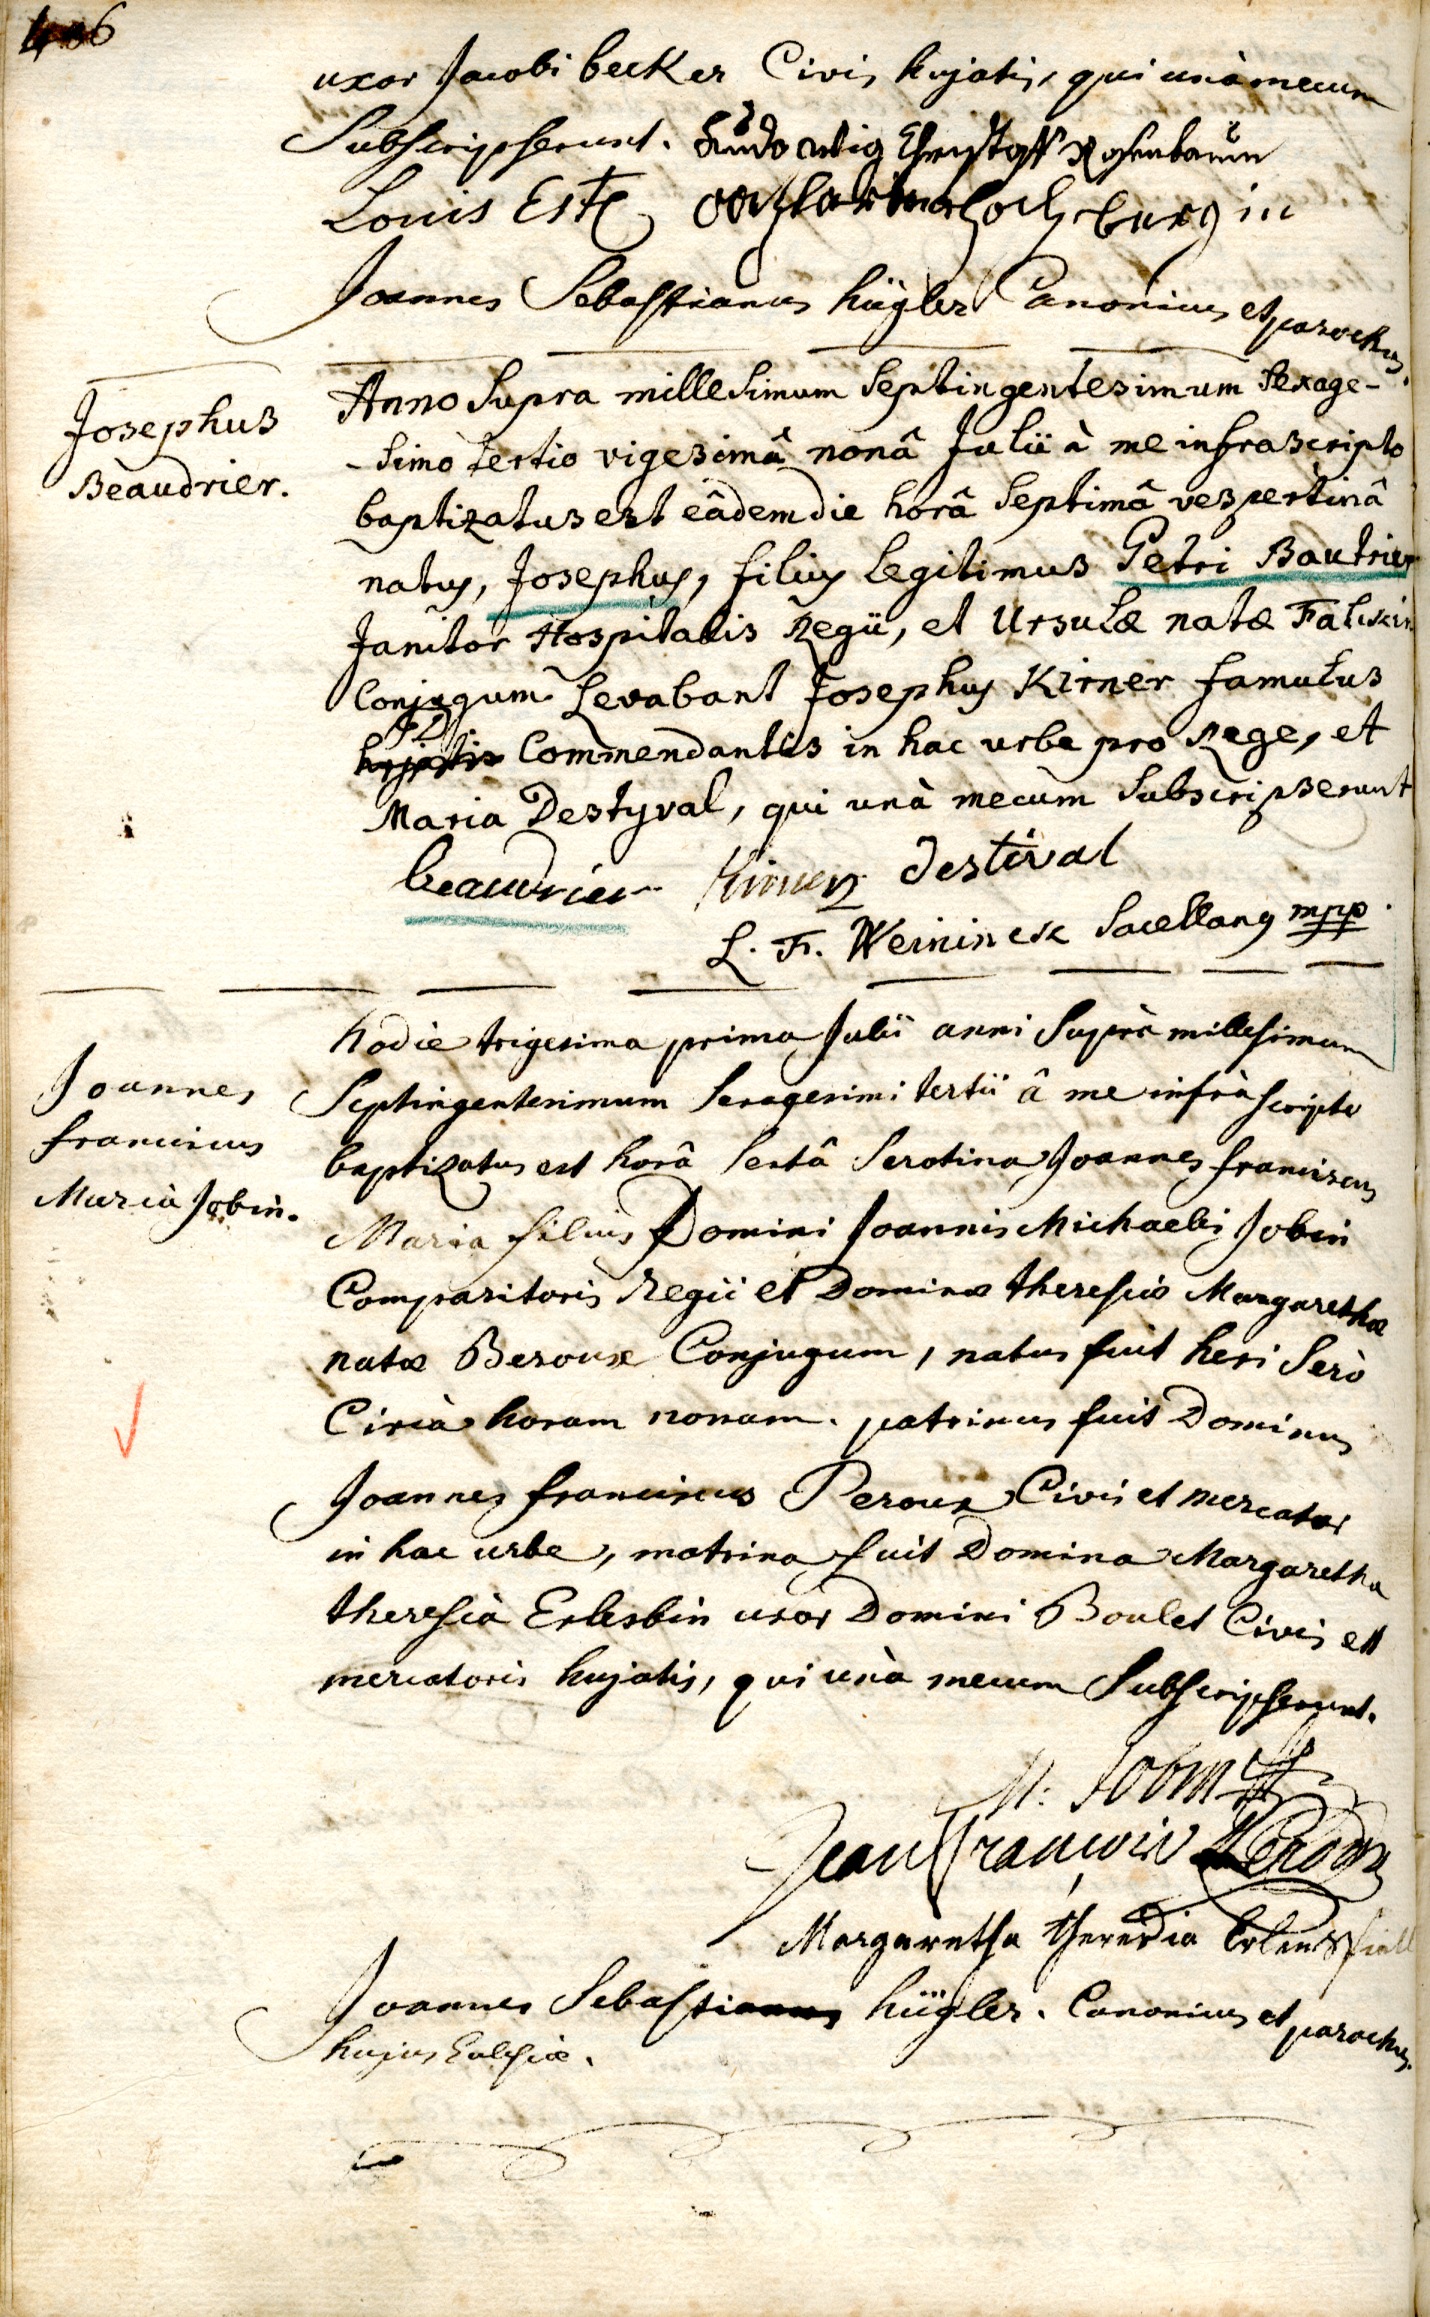 uxor Jacobi becker Civis hujatis, qui unà mecum
Subscripserunt. Ludowig Christoff Rosenbaum
Louis Este
Joannes Sebastianus hügler Canonicus et parochus.
Josephus
Beaudrier.
Anno Supra milleSimum Septingentesimum Sexage-
-Simo tertio vigesimâ nonâ Julii à me infrascripto
baptizatus est eâdem die horâ Septimâ vespertinâ
natus, Josephus, filius legitimus Petri Bautrier
Janitor Hospitalis Regii, et Ursulæ natæ
Conjugum Levabant Josephus Kirner famulus
Commendantis in hac urbe pro Rege, et
Maria Destyval, qui unà mecum Subscripserunt
beaudrier Kirner destival
L. F. Weninck Sacellanus mpp.
Joannes
franciscus
Maria Jobin.
hodie trigesima prima Julii anni Suprà millesimum
Septingentesimum Sexagesimi tertii â me infrà scripto
baptizatus est horâ Sextâ Serotina Joannes franciscus
Maria filius Domini Joannis Michaelis Jobin
Comparitoris Regii et Dominæ theresiæ Margarethæ
natæ Beroux Conjugum, natus fuit heri Serò
Circà horam nonam. patrinus fuit Dominus
Joannes franciscus Peroux Civis et mercator
in hac urbe, matrina fuit Domina Margaretha
theresià Erlesbin uxor Domini Boulet Civis et
mercatoris hujatis, qui unà mecum Subscripserunt.
M. Jobin
Jean François Peroux
Margaretha theresia
Joannes Sebastianus hügler. Canonicus et parochus
hujus Ecclesiæ.